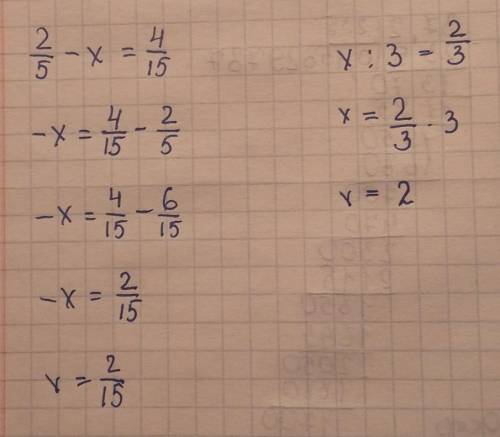 2/5 - x = 4/15
-x = 4/15 - 2/5
-x = 4/15 - 6/15
-x = 2/15
x = 2/15
x : 3 = 2/3
x = 2/3 · 3
x = 2